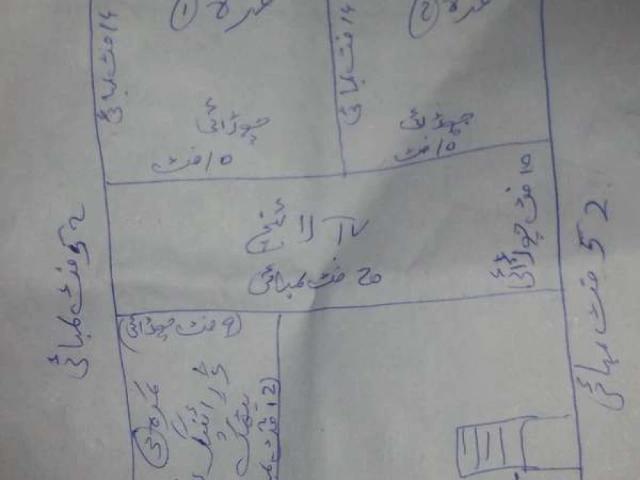 کمرہ ①
14 فٹ لمبائی
چوڑائی
10 فٹ
کمرہ ②
14 فٹ لمبائی
چوڑائی
10 فٹ
52 فٹ لمبائی
TV لانچ
20 فٹ لمبائی
10 فٹ چوڑائی
52 فٹ لمبائی
9 فٹ چوڑائی
کمرہ ③
ڈرائنگ
بیٹھک
12 فٹ